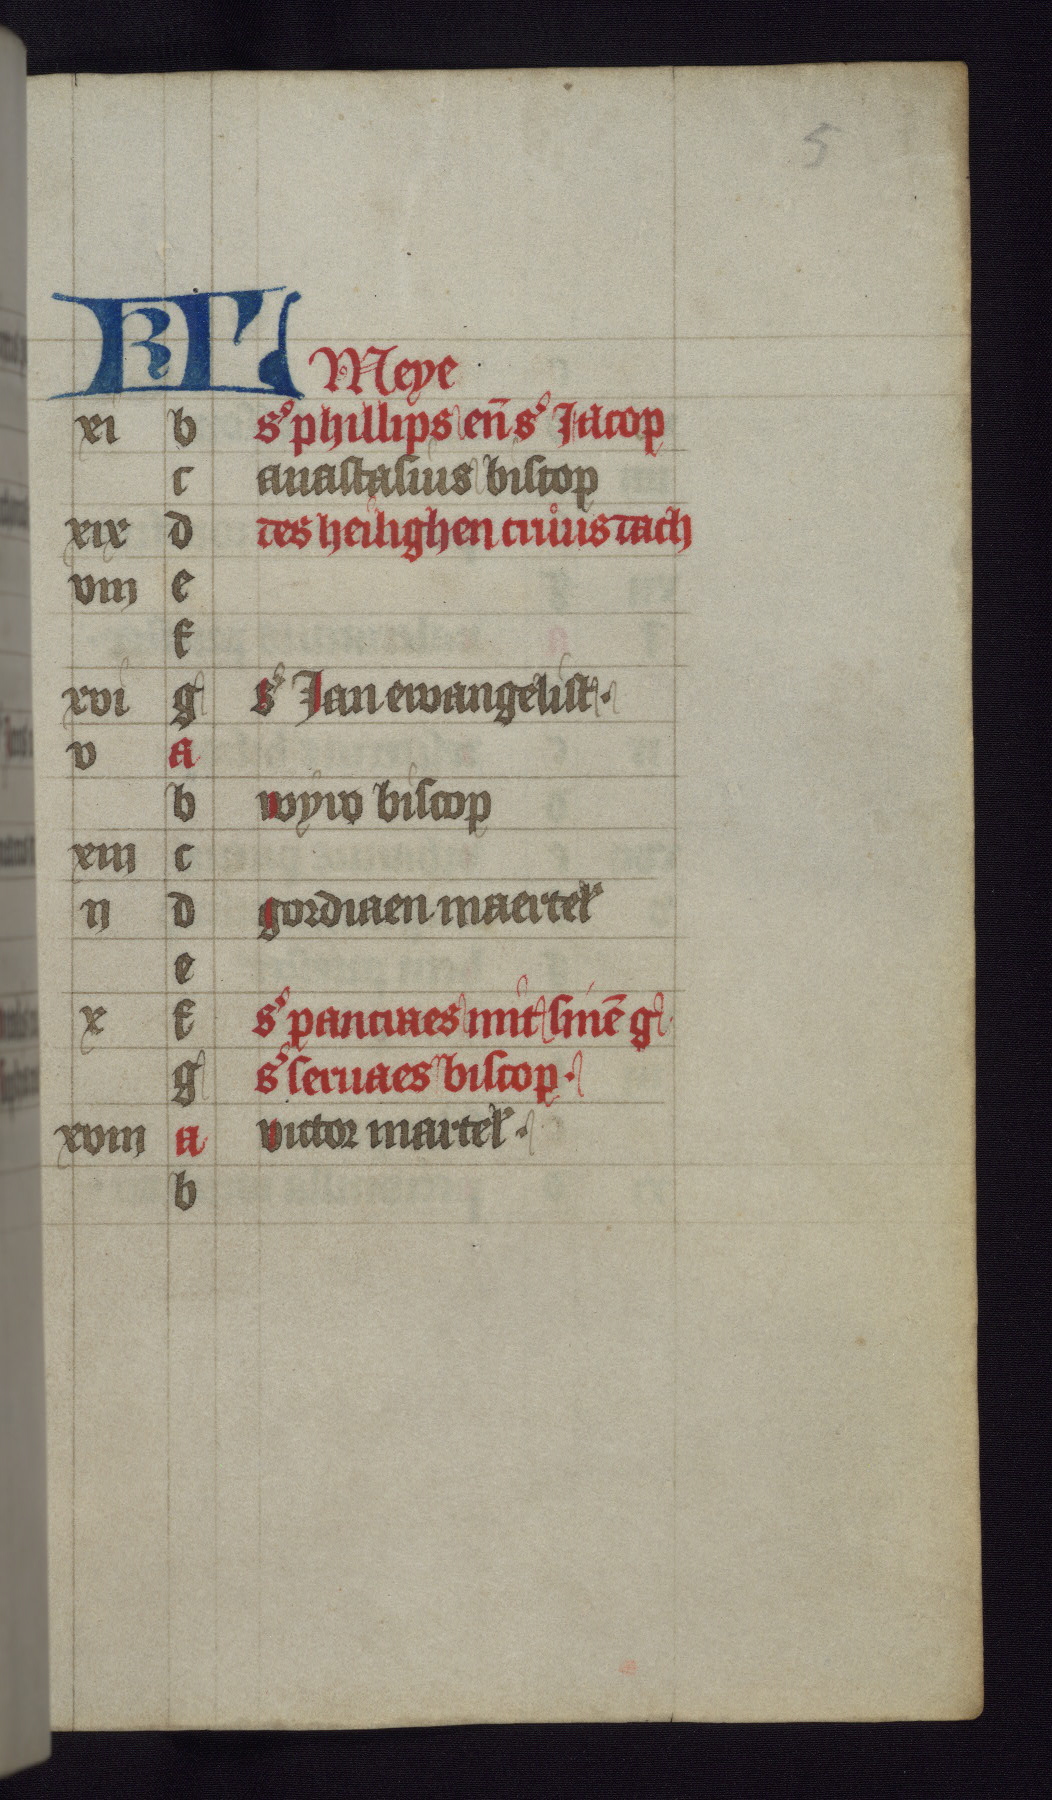 5
KL Meye
xi b sͥ phillips en̄ sͥ Jacop
c anastasius biscop
xix d des heilighen cruus dach
viii e
f
xvi g sͥ Jan ewangelist.
v a
b wyro biscop
xiii c
ii d gordiaen maertelʳ
e
x f sͥ pancraes mit sinē g.
g sͥ seruaes biscop.
xviii a victor martelʳ.
b